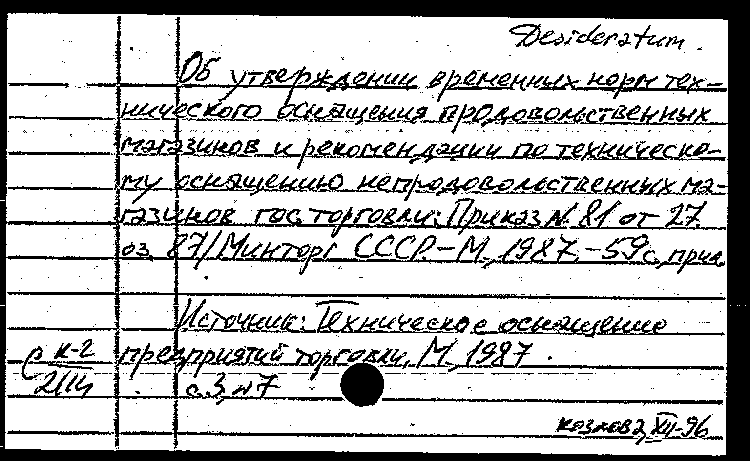 Desideratum.
Об утверждении временных норм тех-
нического оснащения продовольственных
магазинов и рекомендации по техническо-
му оснащению непродовольственных ма-
газинов гос.торговли: Приказ N 81 от 27.
03.87/Минторг СССР.-М.,1987.-59с.,прил.
Источник: Техническое оснащение
к-2 предприятий торговли, М., 1987.
с.3, N7
Козлова, XII-96